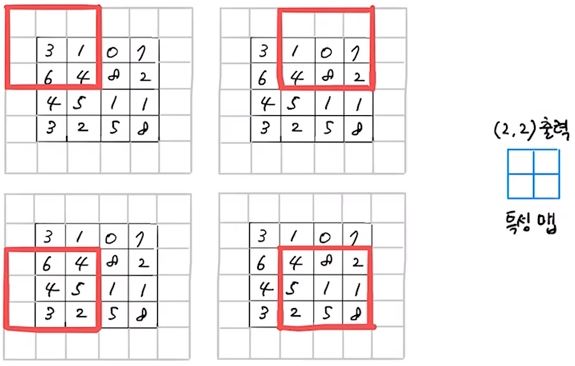 3 1 0 7
6 4 8 2
4 5 1 1
3 2 5 8
3 1 0 7
6 4 8 2
4 5 1 1
3 2 5 8
(2,2) 출력
특성 맵
3 1 0 7
6 4 8 2
4 5 1 1
3 2 5 8
3 1 0 7
6 4 8 2
4 5 1 1
3 2 5 8